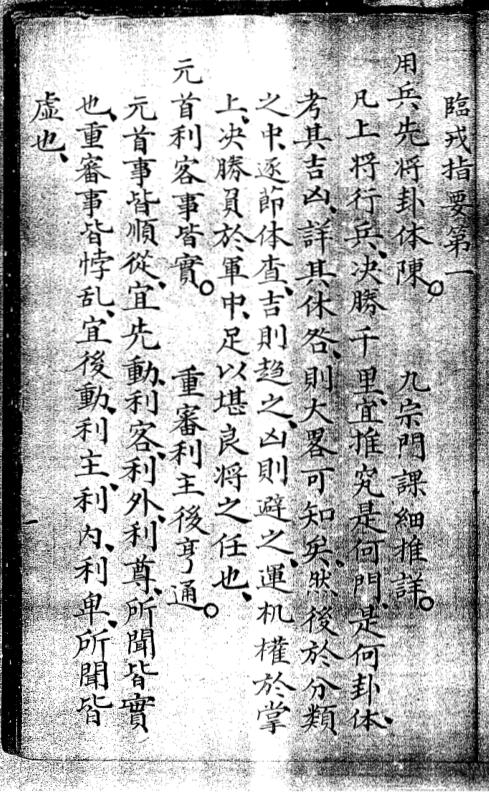 臨戎指要第一
用兵先將卦体陳。　九宗門課細推詳。
凡上将行兵、决勝千里、宜推究是何門、是何卦体、
考其吉凶、詳其休咎、則大畧可知矣、然後於分類
之中、逐節体查、吉則趋之、凶則避之、運机權於掌
上、决勝員於軍中、足以堪良将之任也、
元首利客事皆實。　重審利主後亨通。
元首事皆順從、宜先動、利客、利外、利尊、所聞皆實
也、重審事皆悖乱、宜後動、利主、利内、利卑、所聞皆
虛也、